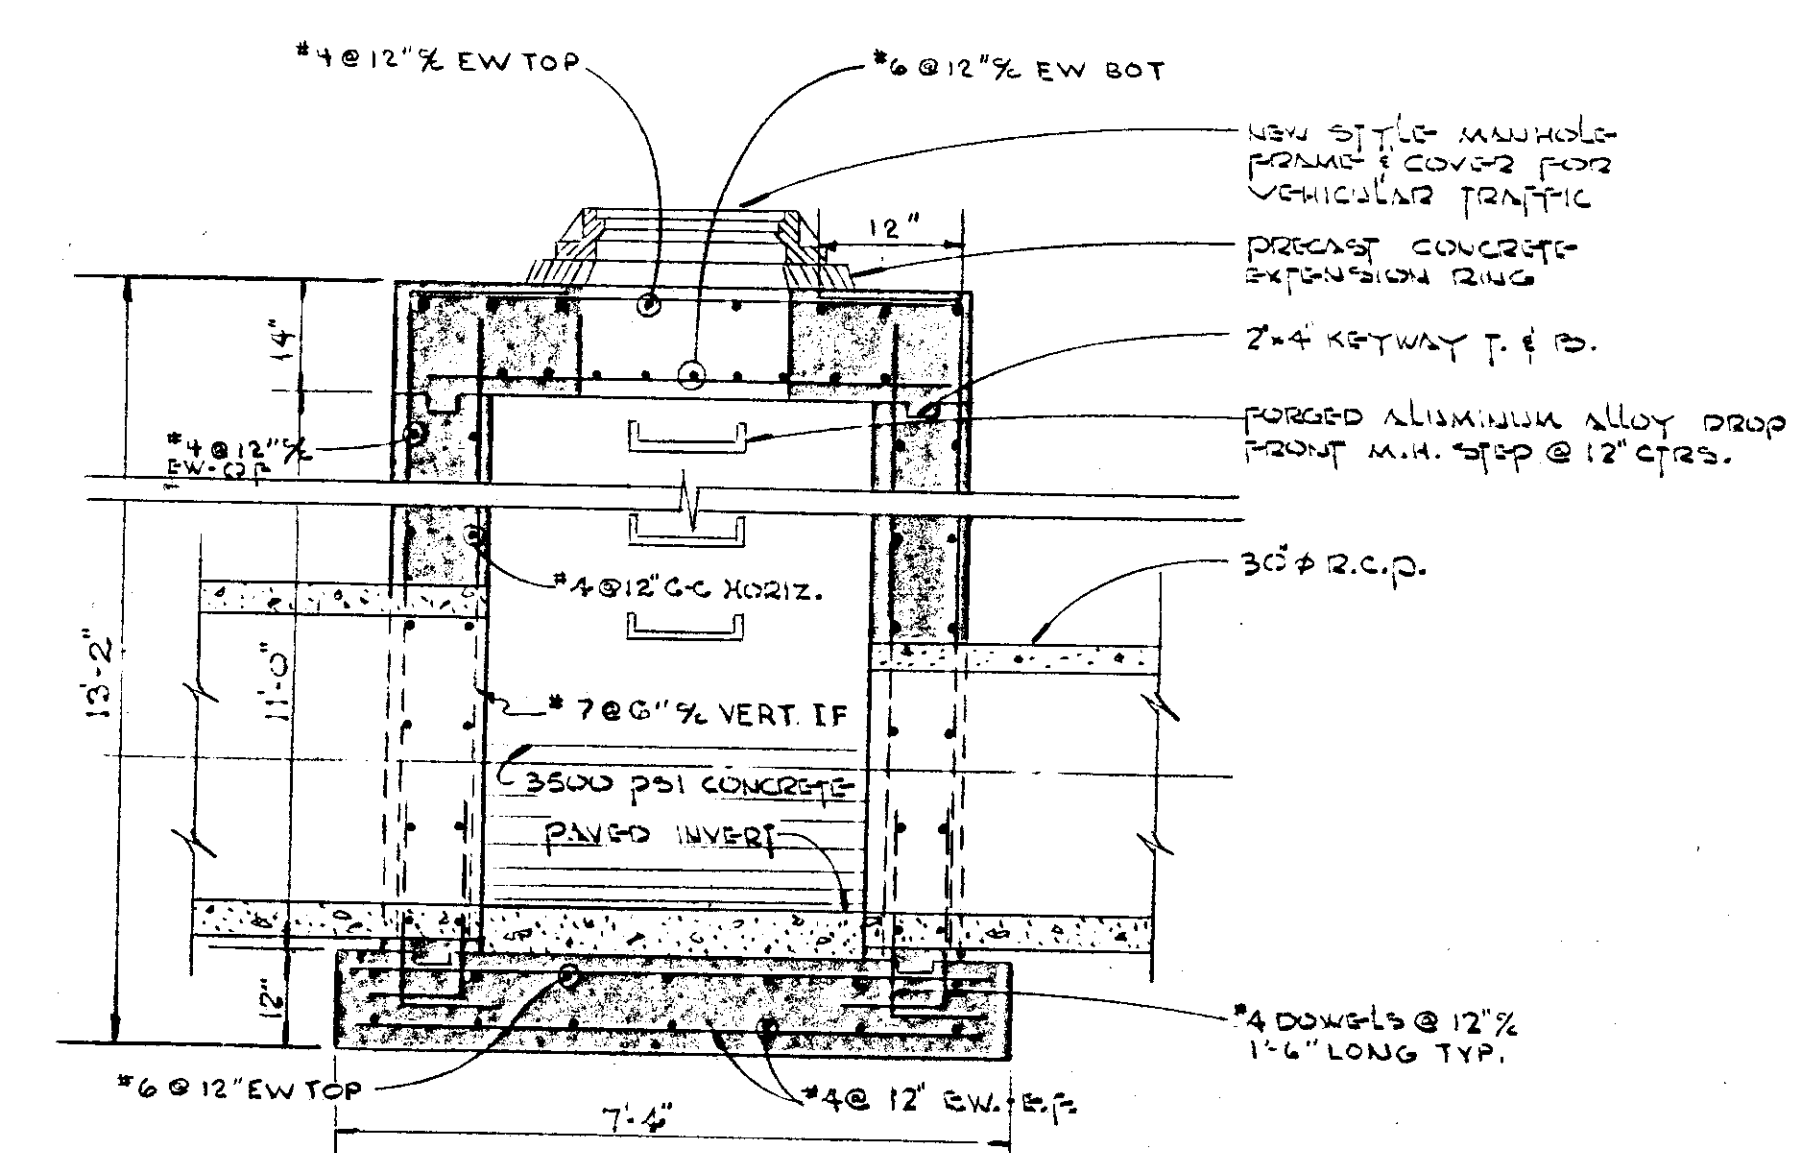 #4 @ 12" ℅ EW TOP
#6 @ 12" ℅ EW BOT
NEW STYLE MANHOLE
FRAME & COVER FOR
VEHICULAR TRAFFIC
12"
PRECAST CONCRETE
EXTENSION RING
14"
2"x4" KEYWAY T. & B.
FORGED ALUMINUM ALLOY DROP
FRONT M.H. STEP @ 12" CTRS.
#4 @ 12" ℅
EW-OF
30"φ R.C.P.
#4 @ 12" C-C HORIZ.
13'-2"
11'-0"
#7 @ 6" ℅ VERT. IF
3500 PSI CONCRETE
PAVED INVERT
12"
#4 DOWELS @ 12" ℅
1'-6" LONG TYP.
#6 @ 12" EW TOP
#4 @ 12" EW. E.F.
7'-4"